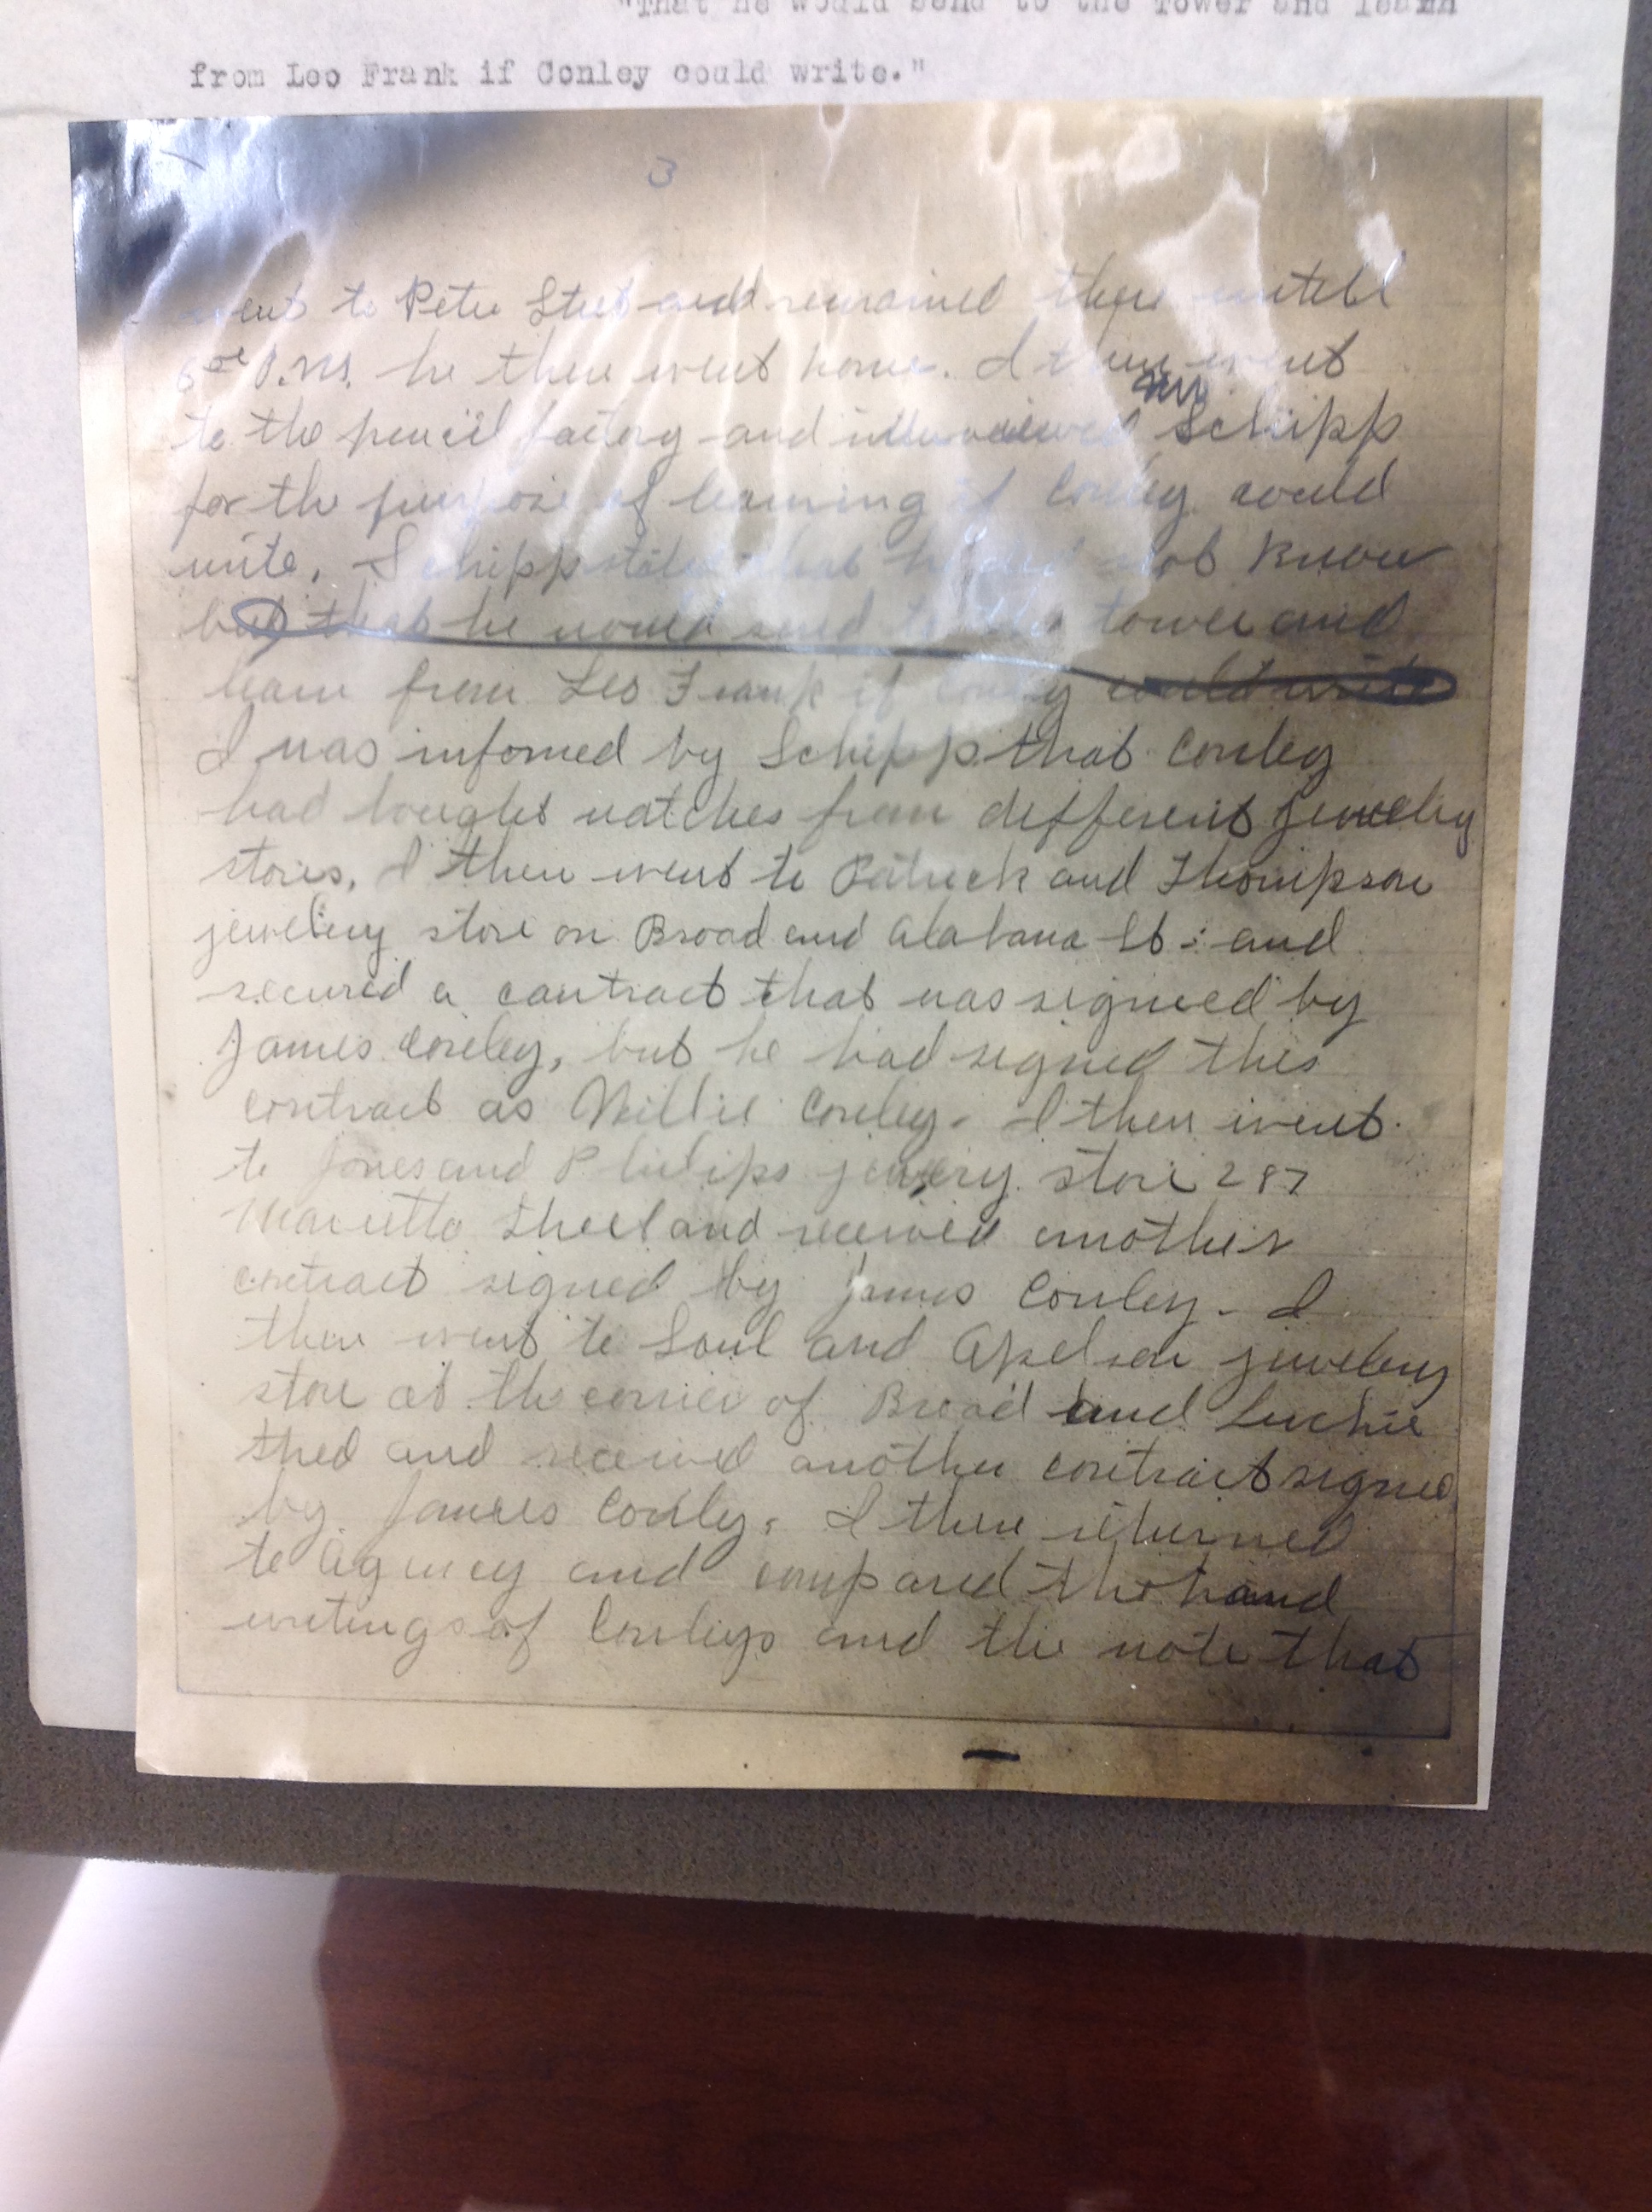 "That he would send to the Tower and learn
from Leo Frank if Conley could write."
3
went to Peter Street and remained there untill
6 00 P.M. he then went home. I then went
to the pencil factory and interviewed Mr Schipp
for the purpose of learning if Conley could
write, Schipp stated that he did not know
but that he would send to the tower and
learn from Leo Frank if Conley could write
I was infomed by Schipp that Conley
had bought watches from different jewelry
stores, I then went to Patrick and Thompson
jewelry store on Broad and Alabama St: and
secured a contract that was signed by
James Conley, but he had signed this
contract as Willie Conley. I then went
to Jones and Philips jewery store 287
Marietta Street and received another
contract signed by James Conley. I
then went to Saul and Abelson jewelery
store at the corner of Broad and Luckie
and received another contract signed
by James Conley. I then returned
to agency and compared the hand
writings of Conleys and the note that